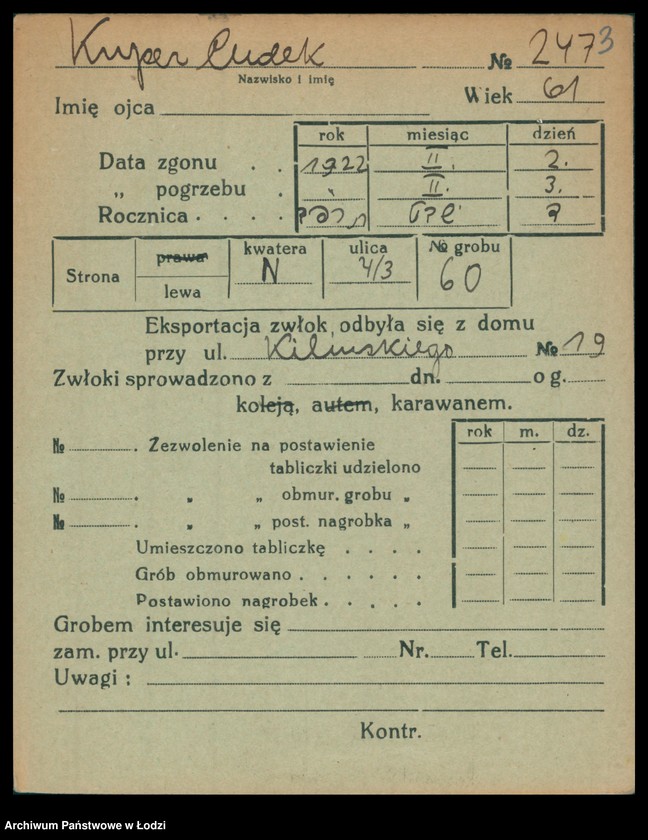 Kuper Cudek № 2473
Nazwisko i imię
Wiek 61
Imię ojca
rok miesiąc dzień
Data zgonu . . 1922 II. 2.
„ pogrzebu . II. 3.
Rocznica . . . .
Strona prawa lewa kwatera N ulica 4/3 № grobu 60
Eksportacja zwłok odbyła się z domu
przy ul. Kilinskiego № 19
Zwłoki sprowadzono z dn. o g.
koleją, autem, karawanem.
rok m. dz.
№ . Zezwolenie na postawienie
tabliczki udzielono
№ . „ „ obmur. grobu „
№ . „ „ post. nagrobka „
Umieszczono tabliczkę . . . .
Grób obmurowano . . . . . .
Postawiono nagrobek . . . . .
Grobem interesuje się
zam. przy ul. Nr. Tel.
Uwagi :
Kontr.
Archiwum Państwowe w Łodzi